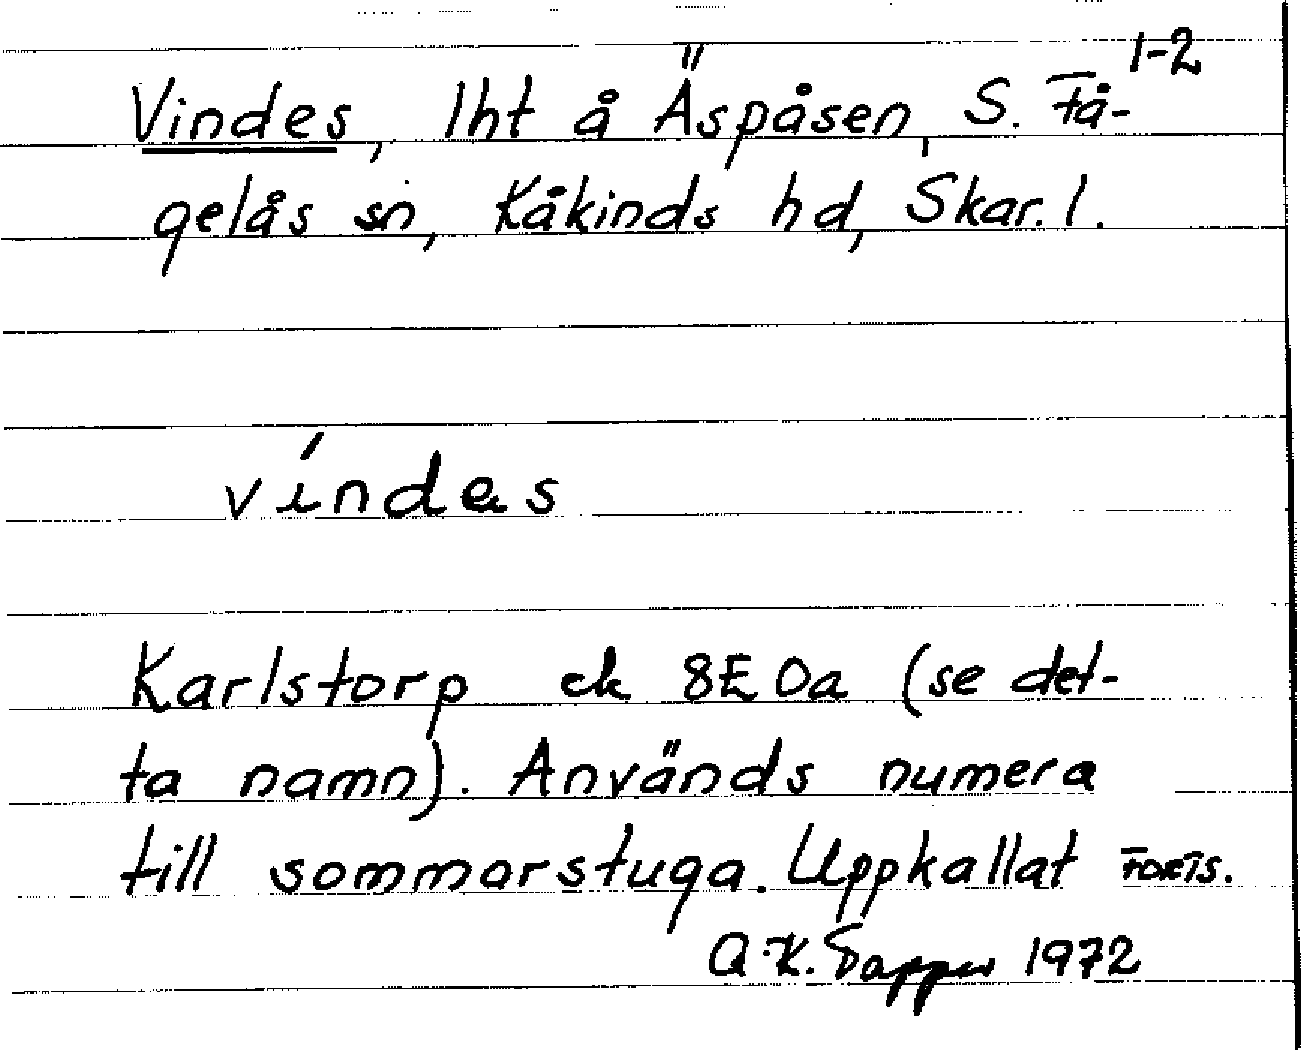 1-2
Vindes, lht å Äspåsen, S. Få-
gelås sn, Kåkinds hd, Skar. l.
víndas
Karlstorp ek 8E 0a (se det-
ta namn). Används numera
till sommarstuga. Uppkallat FORTS.
A-K. Tapper 1972